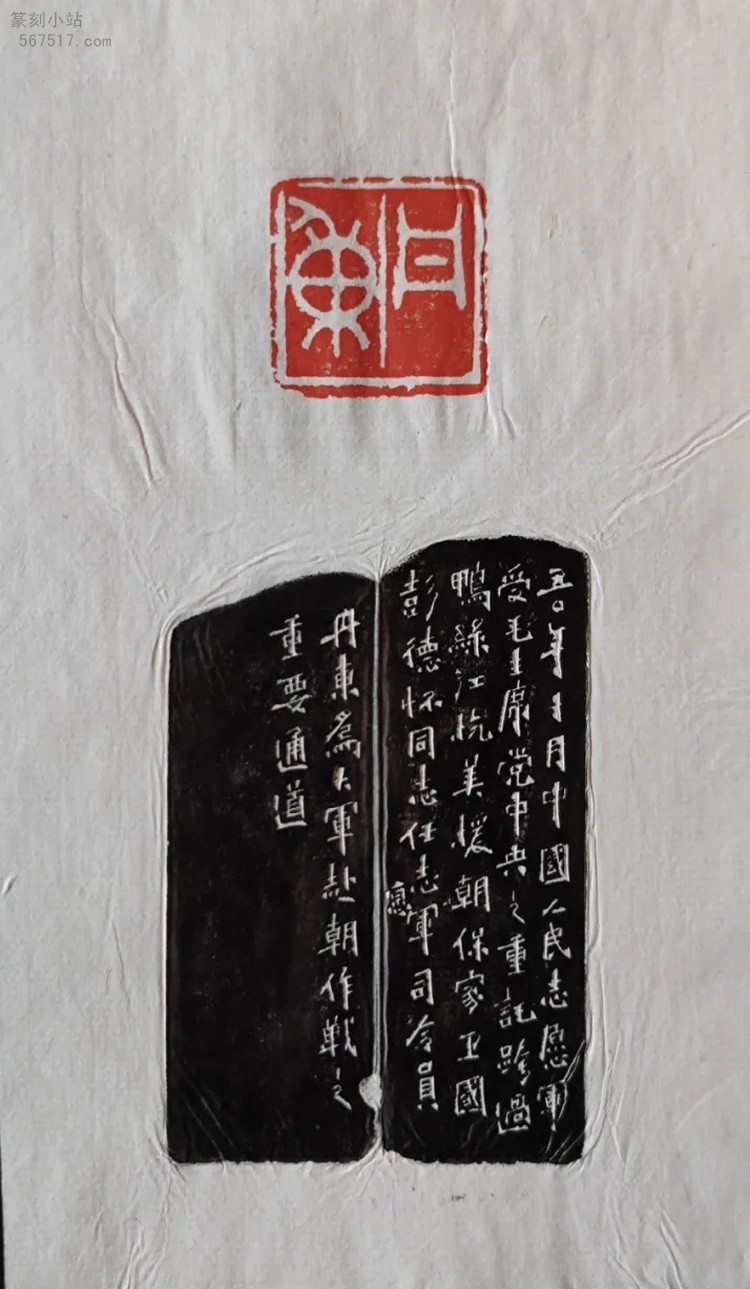 篆刻小站
567517.com
丹東
五〇年十月中國人民志愿軍
受毛主席党中央之重託跨過
鴨綠江抗美援朝保家卫國
彭德怀同志任志愿軍司令員
丹東為大軍赴朝作戦之
重要通道